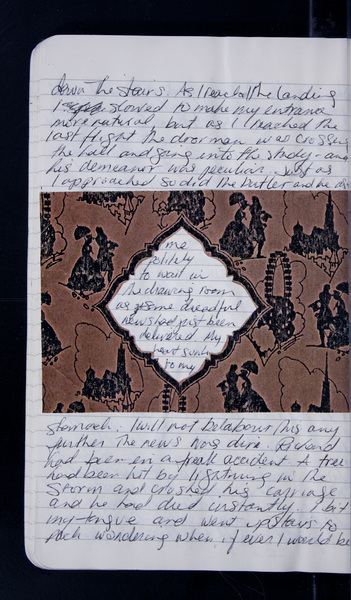 down the stairs. As I reached the landing
I slowed to make my entrance
more natural but as I reached the
last flight the doorman was crossing
the hall and going into the study - and
his demeanor was peculiar. Just as
I approached so did the butler and he as
me
politely
to wait in
the drawing room
as some dreadful
news had just been
delivered. My
heart sunk
to my
stomach. I will not belabour this any
further the news was dire. Richard
had been in a freak accident. A tree
had been hit by lightning in the
storm and crushed his carriage
and he had died instantly. I bit
my tongue and went upstairs to
pack wondering when, if ever I would be